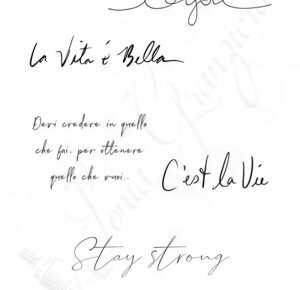 you
La Vita é Bella
Devi credere in quello
che fai, per ottenere
quello che vuoi..
C'est la Vie
Stay strong